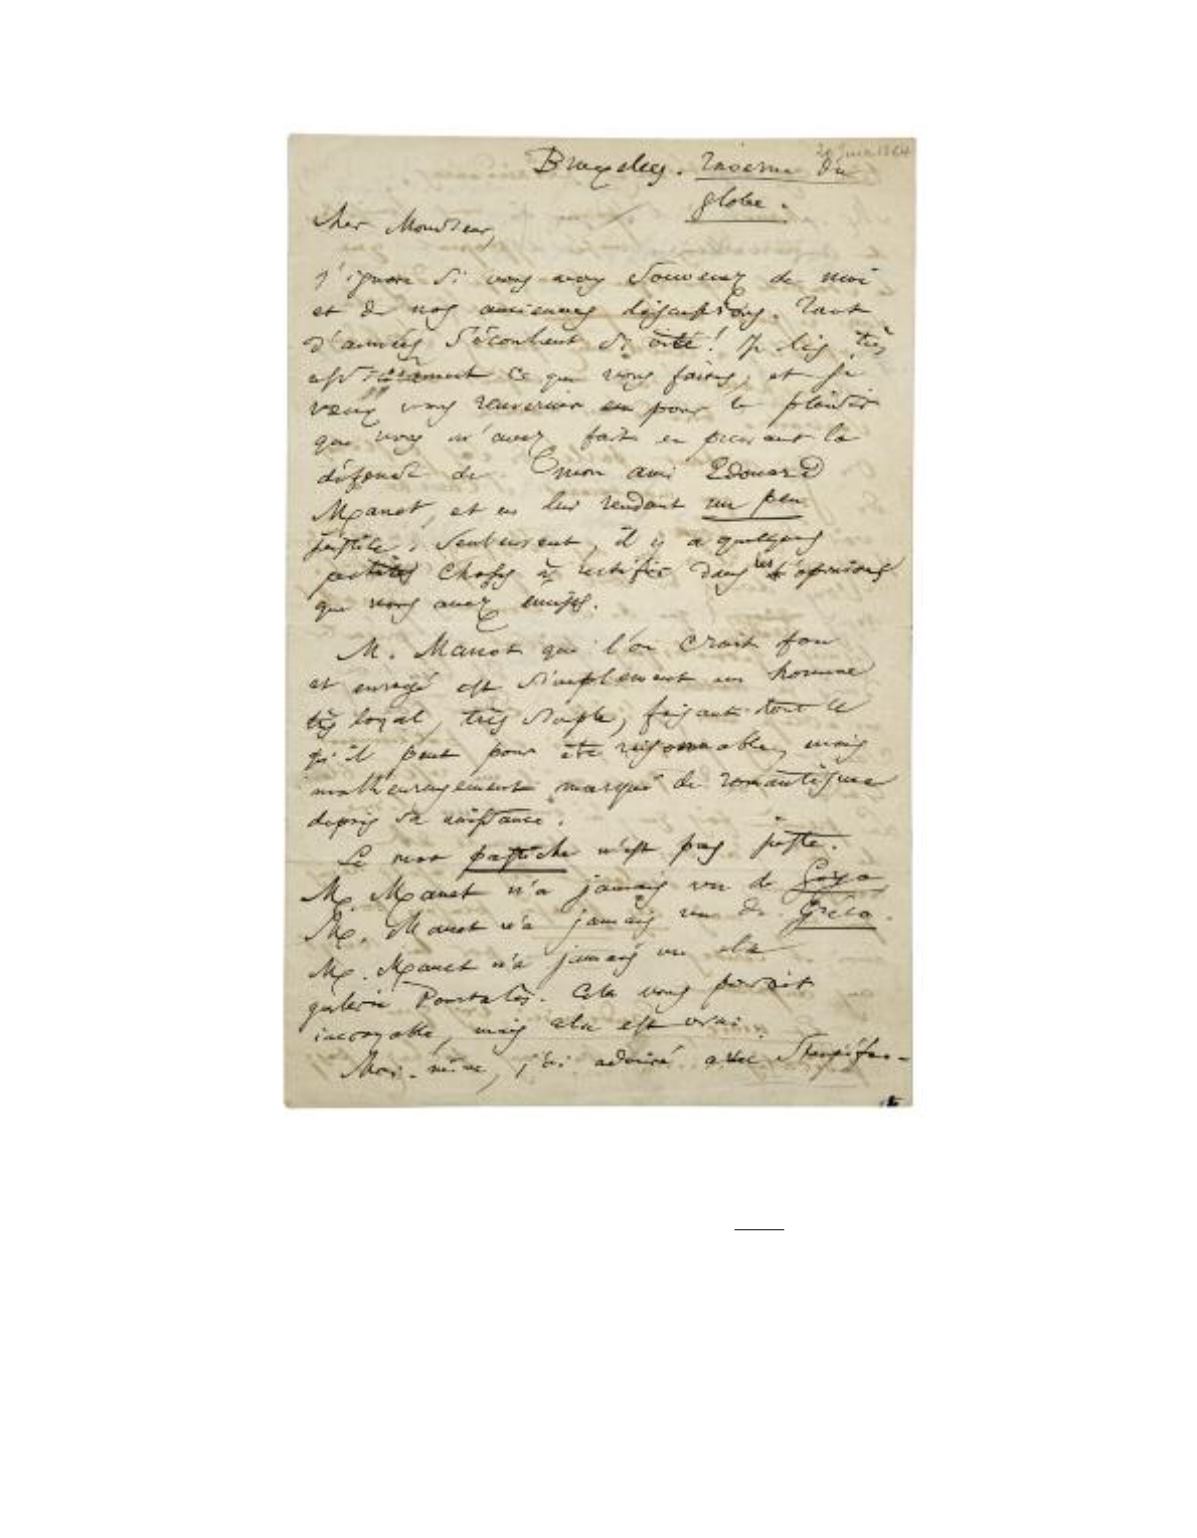 20 juin 1864
Bruxelles. Taverne du
globe.
Cher Monsieur,
J'ignore si vous avez souvenez de moi
et de nos anciennes discussions. Tant
d'années s'écoulent si vite! Je lis très
assidûment ce que vous faites, et je
veux vous remercier pour le plaisir
que vous m'avez fait en prenant la
défense de mon ami Edouard
Manet, et en lui rendant un peu
justice. Seulement, il y a quelques
petites choses à rectifier dans les opinions
que vous avez émises.
M. Manet que l'on croit fou
et enragé est simplement un homme
très loyal, très simple, faisant tout ce
qu'il peut pour être raisonnable, mais
malheureusement marqué de romantisme
depuis sa naissance.
Le mot pastiche n'est pas juste.
M. Manet n'a jamais vu de Goya,
M. Manet n'a jamais vu de Gréco.
M. Manet n'a jamais vu la
galerie Pourtalès. Cela vous paraît
incroyable, mais cela est vrai.
Moi-même, j'ai admiré avec stupéfac-